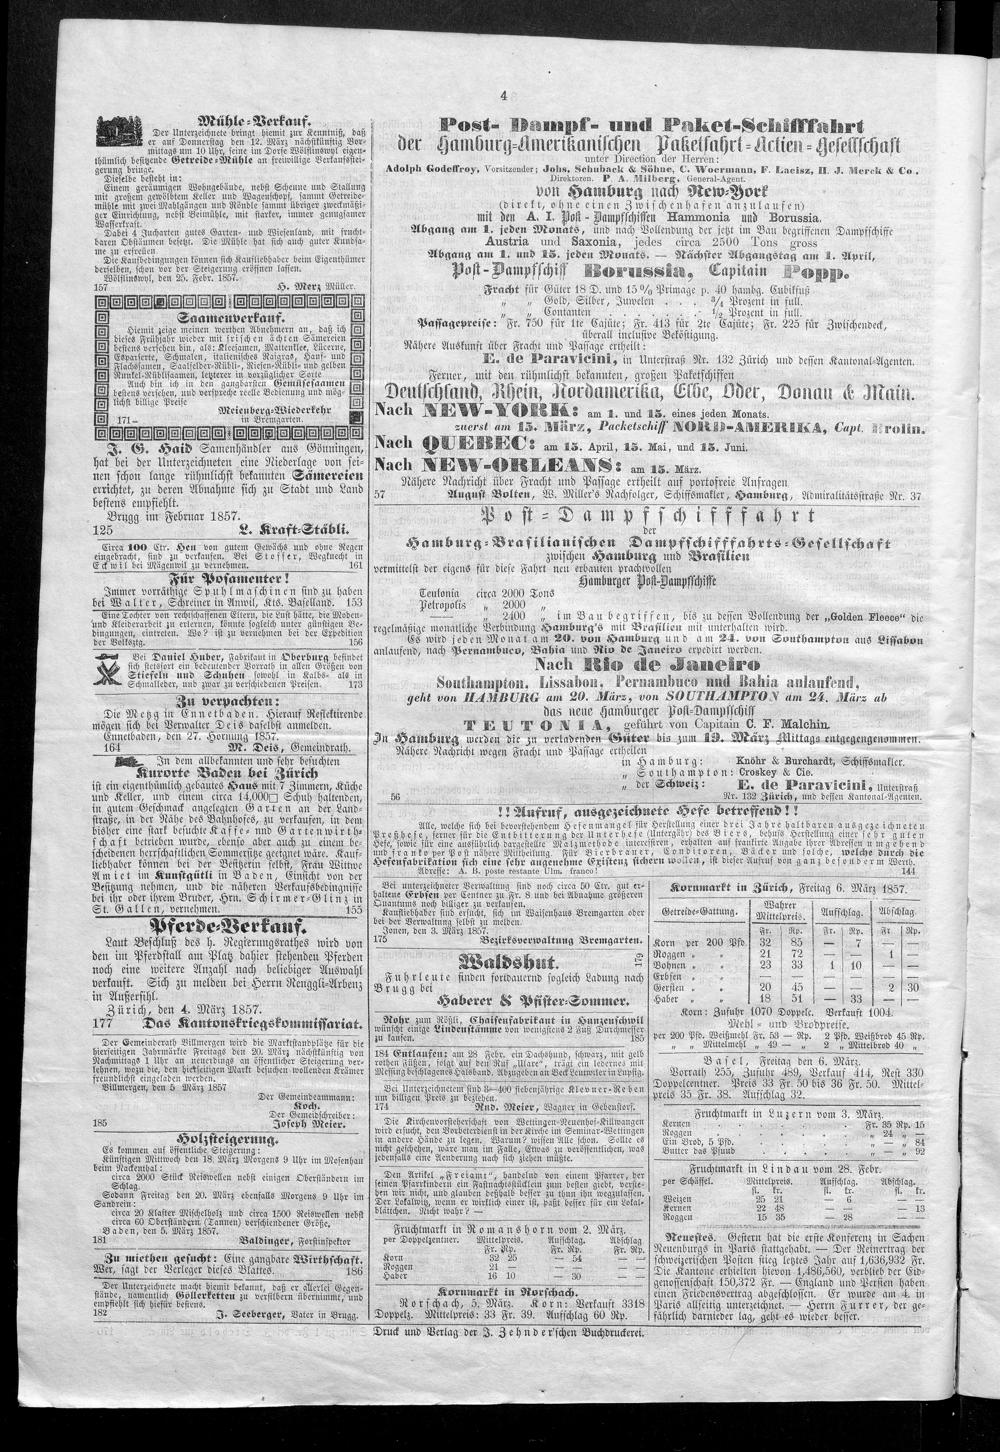 4
Mühle-Verkauf.
Der Unterzeichnete bringt hiemit zur Kenntniß, daß
er auf Donnerstag den 12. März nächstkünftig Vor-
mittags um 10 Uhr, seine im Dorfe Wölflinswyl eigen-
thümlich besitzende Getreide-Mühle an freiwillige Verkaufsstei-
gerung bringe.
Dieselbe besteht in:
Einem geräumigen Wohngebäude, nebst Scheune und Stallung
mit großem gewölbtem Keller und Wagenschopf, sammt Getreide-
mühle mit zwei Mahlgängen und Röndle sammt übriger zweckmäßi-
ger Einrichtung, nebst Beimühle, mit starker, immer genugsamer
Wasserkraft.
Dabei 4 Jucharten gutes Garten- und Wiesenland, mit frucht-
baren Obstbäumen besetzt. Die Mühle hat sich auch guter Kundsa-
me zu erfreuen.
Die Kaufsbedingungen können sich Kaufliebhaber beim Eigenthümer
derselben, schon vor der Steigerung eröffnen lassen.
Wölflinswyl, den 25. Febr. 1857.
157 H. Merz Müller.
Saamenverkauf.
Hiemit zeige meinen werthen Abnehmern an, daß ich
dieses Frühjahr wieder mit frischen ächten Sämereien
bestens versehen bin, als: Kleesamen, Mattenklee, Lücerne,
Esparsette, Schmalen, italienisches Raigras, Hanf- und
Flachssamen, Saalfelder-Rübli, Riesen-Rübli- und gelben
Runkel-Rüblisaamen, letzterer in vorzüglicher Seite
Auch bin ich in den gangbarsten Gemüsesaamen
bestens versehen, und verspreche reelle Bedienung und mög-
lichst billige Preise
Meienberg-Wiederkehr
171- in Bremgarten.
J. G. Haid Samenhändler aus Gönningen,
hat bei der Unterzeichneten eine Niederlage von sei-
nen schon lange rühmlichst bekannten Sämereien
errichtet, zu deren Abnahme sich zu Stadt und Land
bestens empfiehlt.
Brugg im Februar 1857.
125 L. Kraft-Stäbli.
Circa 100 Ctr. Heu von gutem Gewächs und ohne Regen
eingebracht, sind zu verkaufen. Bei Stoffer, Wegknecht in
Eckwil bei Mägenwil zu vernehmen. 161
Für Posamenter!
Immer vorräthige Spuhlmaschinen sind zu haben
bei Walter, Schreiner in Anwil, Kts. Baselland. 153
Eine Tochter von rechtschaffenen Eltern, die Lust hätte, die Moden-
und Kleiderarbeit zu erlernen, könnte sogleich unter günstigen Be-
dingungen, eintreten. Wo? ist zu vernehmen bei der Expedition
der Volksztg. 156
Bei Daniel Huber, Fabrikant in Oberburg befindet
sich stetsfort ein bedeutender Vorrath in allen Größen von
Stiefeln und Schuhen sowohl in Kalbs- als in
Schmalleder, und zwar zu verschiedenen Preisen. 173
Zu verpachten:
Die Metzg in Ennetbaden. Hierauf Reflektirende
mögen sich bei Verwalter Deis daselbst anmelden.
Ennetbaden, den 27. Hornung 1857.
164 M. Deis, Gemeindrath.
In dem allbekannten und sehr besuchten
Kurorte Baden bei Zürich
ist ein eigenthümlich gebautes Haus mit 7 Zimmern, Küche
und Keller, und einem circa 14,000□ Schuh haltenden,
in gutem Geschmack angelegten Garten an der Land-
straße, in der Nähe des Bahnhofes, zu verkaufen, in dem
bisher eine stark besuchte Kaffe- und Gartenwirth-
schaft betrieben wurde, ebenso aber auch zu einem be-
scheidenen herrschaftlichen Sommersitze geeignet wäre. Kauf-
liebhaber können bei der Besitzerin selbst, Frau Wittwe
Amiet im Kunstgütli in Baden, Einsicht von der
Besitzung nehmen, und die näheren Verkaufsbedingnisse
bei ihr oder ihrem Bruder, Hrn. Schirmer-Glinz in
St. Gallen, vernehmen. 155
Pferde-Verkauf.
Laut Beschluß des h. Regierungsrathes wird von
den im Pferdstall am Platz dahier stehenden Pferden
noch eine weitere Anzahl nach beliebiger Auswahl
verkauft. Sich zu melden bei Herrn Renggli-Arbenz
in Außersihl.
Zürich, den 4. März 1857.
177 Das Kantonskriegskommissariat.
Der Gemeinderath Villmergen wird die Marktstandplätze für die
hierseitigen Jahrmärkte Freitags den 20. März nächstkünftig von
Nachmittag 1 Uhr an neuerdings an öffentlicher Steigerung ver-
lehnen, wozu die, den hieseitigen Markt besuchen wollenden Krämer
freundlichst eingeladen werden.
Villmergen, den 5. März 1857
Der Gemeindeammann:
Koch.
Der Gemeindschreiber:
185 Joseph Meier.
Holzsteigerung.
Es kommen auf öffentliche Steigerung:
Künftigen Mittwoch den 18. März Morgens 9 Uhr im Moosenhau
beim Nackenthal:
circa 2000 Stück Reiswellen nebst einigen Oberständern im
Schlag.
Sodann Freitag den 20. März ebenfalls Morgens 9 Uhr im
Sandrein:
circa 20 Klafter Mischelholz und circa 1500 Reiswellen nebst
circa 60 Oberständern (Tannen) verschiedener Größe.
Baden, den 5. März 1857.
181 Baldinger, Forstinspektor
Zu miethen gesucht: Eine gangbare Wirthschaft.
Wer, sagt der Verleger dieses Blattes. 186
Der Unterzeichnete macht hiemit bekannt, daß er allerlei Gegen-
stände, namentlich Gollerketten zu versilbern übernimmt, und
empfiehlt sich hiefür bestens.
182 J. Seeberger, Vater in Brugg.
Post- Dampf- und Paket-Schifffahrt
der Hamburg-Amerikanischen Paketfahrt-Actien-Gesellschaft
unter Direction der Herren:
Adolph Godeffroy, Vorsitzender; Johs. Schuback & Söhne, C. Woermann, F. Laeisz, H. J. Merck & Co.,
Direktoren. P. A. Milberg, General-Agent.
von Hamburg nach New-York
(direkt, ohne einen Zwischenhafen anzulaufen)
mit den A. I. Post-Dampfschiffen Hammonia und Borussia.
Abgang am 1. jeden Monats, und nach Vollendung der jetzt im Bau begriffenen Dampfschiffe
Austria und Saxonia, jedes circa 2500 Tons gross
Abgang am 1. und 15. jeden Monats. — Nächster Abgangstag am 1. April,
Post-Dampfschiff Borussia, Capitain Popp.
Fracht für Güter 18 D. und 15% Primage p. 40 hambg. Cubikfuß
„ „ Gold, Silber, Juwelen . . . ¾ Prozent in full.
„ „ Contanten . . . . . . ½ Prozent in full.
Passagepreise: Fr. 750 für 1te Cajüte; Fr. 413 für 2te Cajüte; Fr. 225 für Zwischendeck,
überall inclusive Beköstigung.
Nähere Auskunft über Fracht und Passage ertheilt:
E. de Paravicini, in Unterstraß Nr. 132 Zürich und dessen Kantonal-Agenten.
Ferner, mit den rühmlichst bekannten, großen Paketschiffen
Deutschland, Rhein, Nordamerika, Elbe, Oder, Donau & Main.
Nach NEW-YORK: am 1. und 15. eines jeden Monats.
zuerst am 15. März, Packetschiff NORD-AMERIKA, Capt. Brolin.
Nach QUEBEC: am 15. April, 15. Mai, und 15. Juni.
Nach NEW-ORLEANS: am 15. März.
Nähere Nachricht über Fracht und Passage ertheilt auf portofreie Anfragen
57 August Bolten, W. Miller's Nachfolger, Schiffsmakler, Hamburg, Admiralitätsstraße Nr. 37
Post-Dampfschifffahrt
der
Hamburg-Brasilianischen Dampfschifffahrts-Gesellschaft
zwischen Hamburg und Brasilien
vermittelst der eigens für diese Fahrt neu erbauten prachtvollen
Hamburger Post-Dampfschiffe
Teutonia circa 2000 Tons
Petropolis „ 2000 „
—— „ 2400 „ im Bau begriffen, bis zu dessen Vollendung der „Golden Fleece“ die
regelmäßige monatliche Verbindung Hamburg's mit Brasilien mit unterhalten wird.
Es wird jeden Monat am 20. von Hamburg und am 24. von Southampton aus Lissabon
anlaufend, nach Pernambuco, Bahia und Rio de Janeiro expedirt werden.
Nach Rio de Janeiro
Southampton, Lissabon, Pernambuco und Bahia anlaufend,
geht von HAMBURG am 20. März, von SOUTHAMPTON am 24. März ab
das neue Hamburger Post-Dampfschiff
TEUTONIA, geführt von Capitain C. F. Malchin.
In Hamburg werden die zu verladenden Güter bis zum 19. März Mittags entgegengenommen.
Nähere Nachricht wegen Fracht und Passage ertheilen
in Hamburg: Knöhr & Burchardt, Schiffsmakler.
„ Southampton: Croskey & Cie.
„ der Schweiz: E. de Paravicini, Unterstraß
56 Nr. 132 Zürich, und dessen Kantonal-Agenten.
!! Aufruf, ausgezeichnete Hefe betreffend!!
Alle, welche sich bei bevorstehendem Hefenmangel für Herstellung einer drei Jahre haltbaren ausgezeichneten
Preßhefe, ferner für die Entbitterung der Unterhefe (Untergähr) des Biers, behufs Herstellung einer sehr guten
Hefe, sowie für eine ausführlich dargestellte Malzmethode interessiren, erhalten auf frankirte Angabe ihrer Adressen umgehend
und franko per Post nähere Mittheilung. Für Bierbrauer, Conditoren, Bäcker und solche, welche durch die
Hefenfabrikation sich eine sehr angenehme Existenz sichern wollen, ist dieser Aufruf von ganz besonderm Werth.
Adresse: A. B. poste restante Ulm. franco! 144
Bei unterzeichneter Verwaltung sind noch circa 50 Ctr. gut er-
haltene Erbsen per Centner zu Fr. 8 und bei Abnahme größeren
Quantums noch billiger zu verkaufen.
Kaufliebhaber sind ersucht, sich im Waisenhaus Bremgarten oder
bei der Verwaltung selbst zu melden.
Jonen, den 3. März 1857.
175 Bezirksverwaltung Bremgarten.
Waldshut. 179
Fuhrleute finden fortdauernd sogleich Ladung nach
Brugg bei
Haberer & Pfister-Sommer.
Rohr zum Rößli, Chaisenfabrikant in Hunzenschwil
wünscht einige Lindenstämme von wenigstens 2 Fuß Durchmesser
zu kaufen. 185
184 Entlaufen: am 28. Febr. ein Dachshund, schwarz, mit gelb
rothen Füßen, folgt auf den Ruf „Ware“, trägt ein ledernes mit
Messing beschlagenes Halsband. Abzugeben an Beck Leutwiler in Lupfig.
Bei Unterzeichnetem sind 3—400 siebenjährige Klevner-Reben
um billigen Preis zu beziehen.
174 Rud. Meier, Wagner in Gebenstorf.
Die Kirchenvorsteherschaft von Wettingen-Neuenhof-Killwangen
wird ersucht, den Vorbeterdienst in der Kirche im Seminar-Wettingen
in andere Hände zu legen. Warum? wissen Alle schon. Sollte es
nicht geschehen, wäre man im Falle, Etwas zu veröffentlichen, was
jedenfalls eine Aenderung nach sich ziehen müßte.
Den Artikel „Freiamt“, handelnd von einem Pfarrer, der
seinen Pfarrkindern ein Fastnachtsküchlein zum besten giebt, verste-
hen wir nicht, und glauben deßhalb besser zu thun ihn wegzulassen.
Der Lokalwitz, wenn er wirklich einer ist, paßt besser für ein Lokal-
blättchen. Nicht wahr? —
Fruchtmarkt in Romanshorn vom 2. März.
per Doppelzentner. Mittelpreis. Aufschlag. Abschlag
Fr. Rp. Fr. Rp. Fr. Rp.
Korn 32 25 — 54 — —
Roggen 21 — — — — —
Haber 16 10 — 30 — —
Kornmarkt in Rorschach.
Rorschach, 5. März. Korn: Verkauft 3318
Doppelz. Mittelpreis: 33 Fr. 39. Aufschlag 60 Rp.
Kornmarkt in Zürich, Freitag 6. März 1857.
Getreide-Gattung. Wahrer Mittelpreis. Aufschlag. Abschlag
Fr. Rp. Fr. Rp. Fr Rp.
Korn per 200 Pfd. 32 85 — 7 — —
Roggen „ „ 21 72 — — 1 —
Bohnen „ „ 23 33 1 10 — —
Erbsen „ „ — — — — — —
Gersten „ „ 20 45 — — 2 30
Haber „ „ 18 51 — 33 — —
Korn: Zufuhr 1070 Doppelc. Verkauft 1004.
Mehl- und Brodpreise.
per 200 Pfd. Weißmehl Fr. 53 — Rp. 2 Pfd. Weißbrod 45 Rp.
„ „ Mittelmehl „ 49 — „ 2 „ Mittelbrod 40 „
Basel, Freitag den 6. März.
Vorrath 255, Zufuhr 489, Verkauf 414, Rest 330
Doppelcentner. Preis 33 Fr. 50 bis 36 Fr. 50. Mittel-
preis 35 Fr. 38. Aufschlag 32.
Fruchtmarkt in Luzern vom 3. März.
Kernen . . . . . Fr. 35 Rp. 15
Roggen . . . . . „ 24 „ —
Ein Brod, 5 Pfd. . . . . „ — „ 84
Butter das Pfund . . . . „ — „ 92
Fruchtmarkt in Lindau vom 28. Febr.
per Schäffel. Mittelpreis. Aufschlag. Abschlag.
fl. kr. fl. kr. fl. kr.
Weizen 25 21 — 6 — —
Kernen 22 48 — — — 13
Roggen 15 35 — 28 — —
Neuestes. Gestern hat die erste Konferenz in Sachen
Neuenburgs in Paris stattgehabt. — Der Reinertrag der
schweizerischen Posten stieg letztes Jahr auf 1,636,932 Fr.
Die Kantone erhielten hievon 1,486,560, verblieb der Eid-
genossenschaft 150,372 Fr. — England und Persien haben
einen Friedensvertrag abgeschlossen. Er wurde am 4. in
Paris allseitig unterzeichnet. — Herrn Furrer, der ge-
fährlich darnieder lag, geht es wieder besser.
Druck und Verlag der J. Zehnder'schen Buchdruckerei.